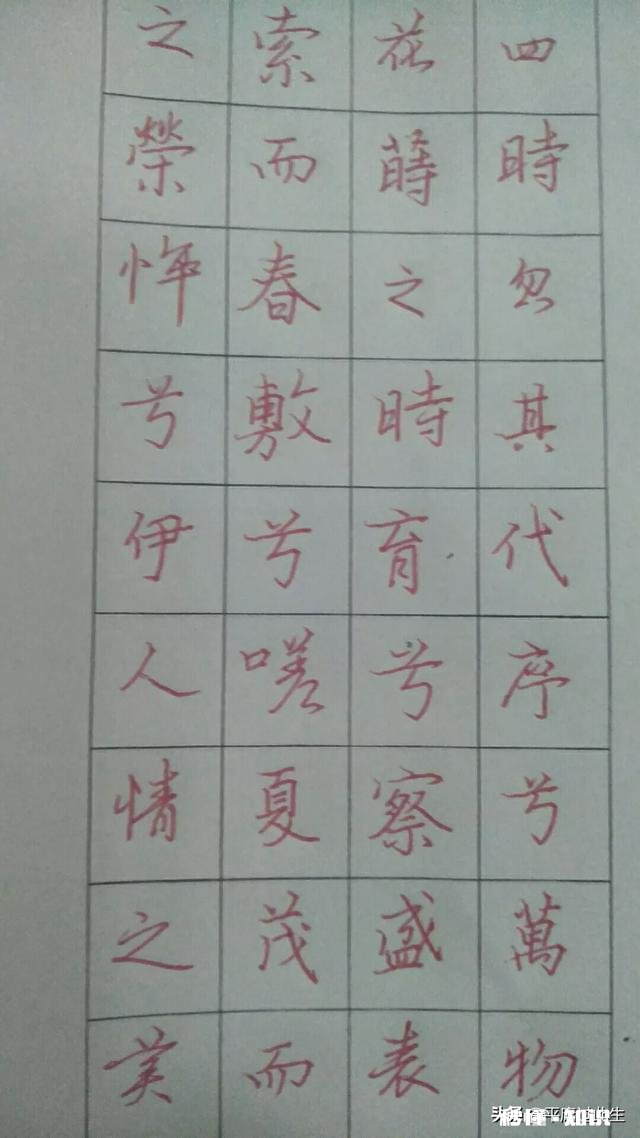 四時忽其代序兮萬物
花蒔之時育兮察盛衰
索而春敷兮嗟夏茂而
之榮悴兮伊人情之美